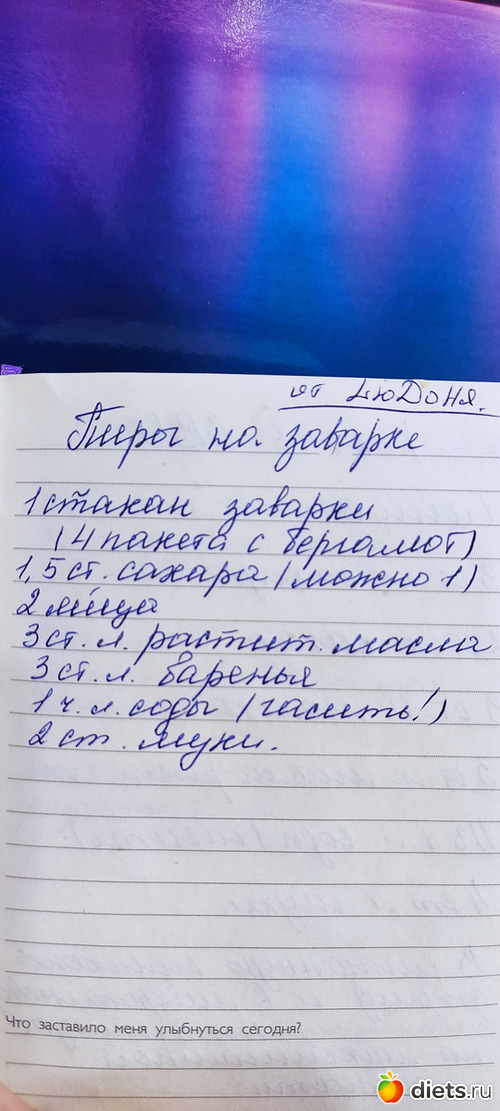 от ЛюДоНя.
Пиры на заварке
1 стакан заварки
(4 пакета с бергамот)
1,5 ст. сахара (можно 1)
2 яйца
3 ст. л. растит. масла
3 ст. л. варенья
1 ч. л. соды (гасить!)
2 ст. муки.
Что заставило меня улыбнуться сегодня?
diets.ru